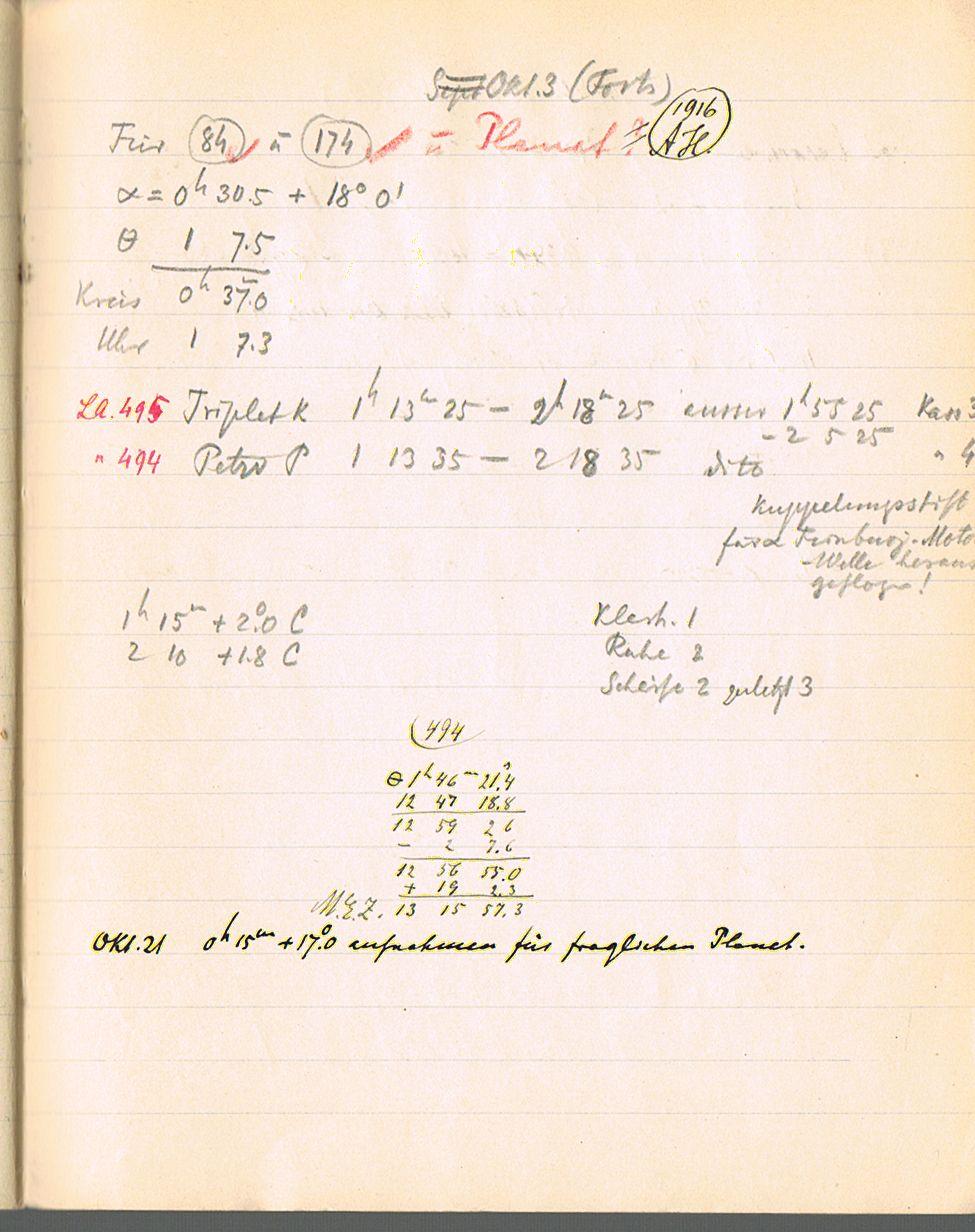 Sept Okt. 3 (Forts)
Für 84 u 174 = Planet? = 1916 AH.
α = 0h 30.5 + 18° 0'
θ 1 7.5
Kreis 0h 37.0
Uhr 1 7.3
LA. 495 Triplet K 1h 13m 25 – 2h 18m 25 ausser 1h 55 25 Kass 3
– 2 5 25
" 494 Petzv P 1 13 35 – 2 18 35 dito " 4
Kuppelungsstift
für α Feinbeweg. Moto
Welle heraus
geflogen!
1h 15m + 2°.0 C
2 10 + 1.8 C
Klarh. 1
Ruhe 2
Schärfe 2 zuletzt 3
494
θ 1h 46m 21s.4
12 47 18.8
12 59 2 6
– 2 7.6
12 56 55.0
+ 19 2.3
M.E.Z. 13 15 57.3
Okt. 21 0h 15m + 17°.0 aufnehmen für fraglichen Planet.